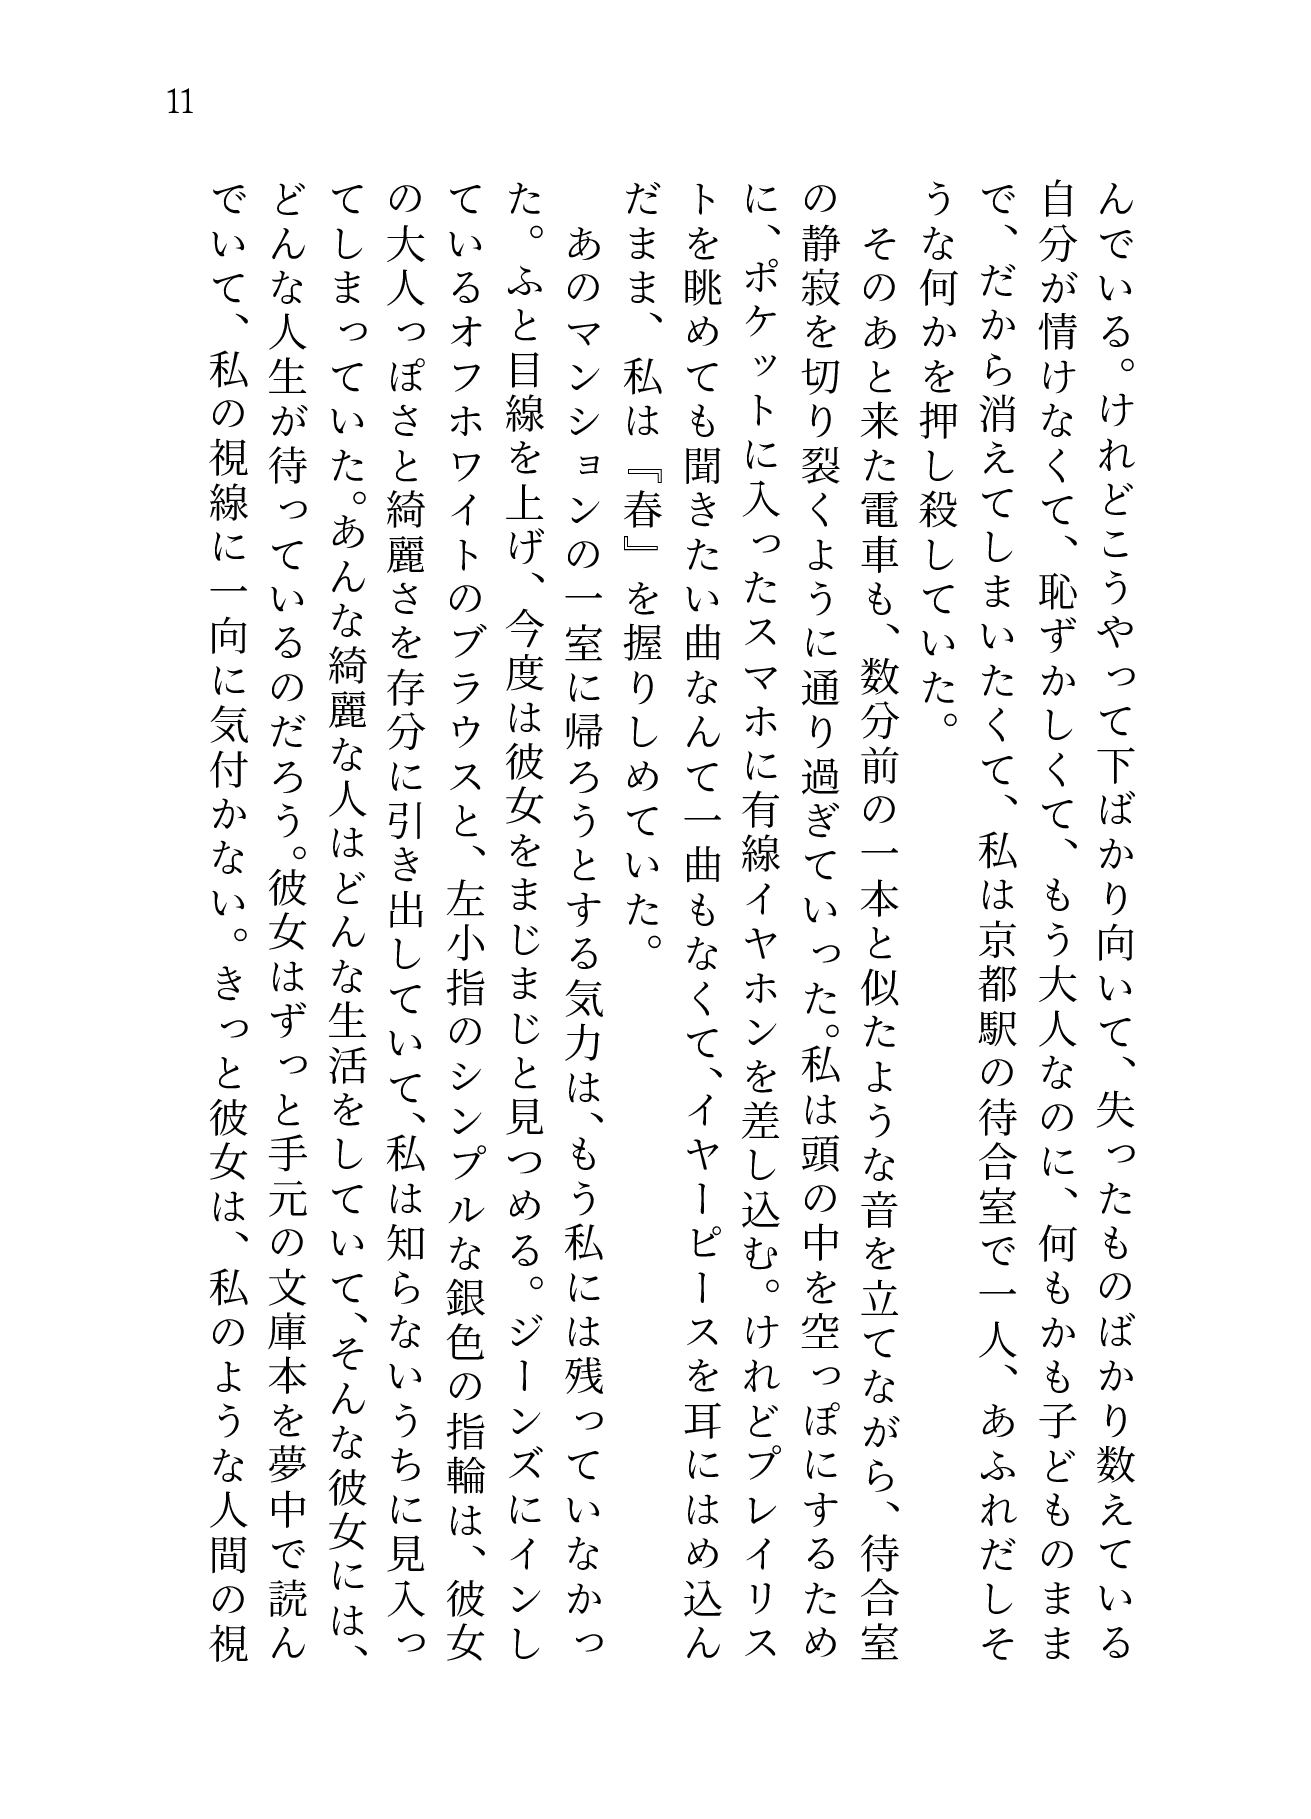 11
んでいる。けれどこうやって下ばかり向いて、失ったものばかり数えている
自分が情けなくて、恥ずかしくて、もう大人なのに、何もかも子どものまま
で、だから消えてしまいたくて、私は京都駅の待合室で一人、あふれだしそ
うな何かを押し殺していた。
　そのあと来た電車も、数分前の一本と似たような音を立てながら、待合室
の静寂を切り裂くように通り過ぎていった。私は頭の中を空っぽにするため
に、ポケットに入ったスマホに有線イヤホンを差し込む。けれどプレイリス
トを眺めても聞きたい曲なんて一曲もなくて、イヤーピースを耳にはめ込ん
だまま、私は『春』を握りしめていた。
　あのマンションの一室に帰ろうとする気力は、もう私には残っていなかっ
た。ふと目線を上げ、今度は彼女をまじまじと見つめる。ジーンズにインし
ているオフホワイトのブラウスと、左小指のシンプルな銀色の指輪は、彼女
の大人っぽさと綺麗さを存分に引き出していて、私は知らないうちに見入っ
てしまっていた。あんな綺麗な人はどんな生活をしていて、そんな彼女には、
どんな人生が待っているのだろう。彼女はずっと手元の文庫本を夢中で読ん
でいて、私の視線に一向に気付かない。きっと彼女は、私のような人間の視